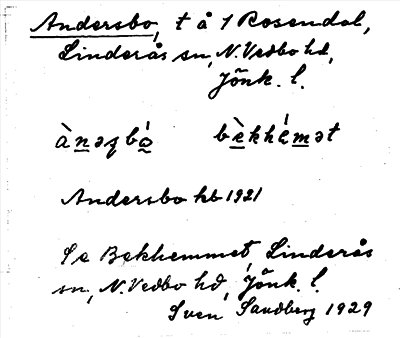 Andersbo, t å 1 Rosendal,
Linderås sn, N. Vedbo hd,
Jönk. l.
ànəʂbó̠ bè̠khémət
Andersbo hb 1921
Se Bekhemmet, Linderås
sn, N. Vedbo hd, Jönk. l.
Sven Sandberg 1929